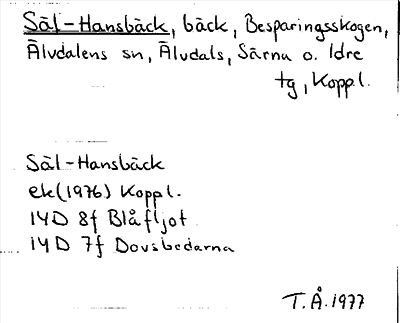 Säl-Hansbäck, bäck, Besparingsskogen,
Älvdalens sn, Älvdals, Särna o. Idre
tg, Koppl.
Säl-Hansbäck
ek(1976) Koppl.
14D 8f Blåfljot
14D 7f Dovsbodarna
T.Å.1977